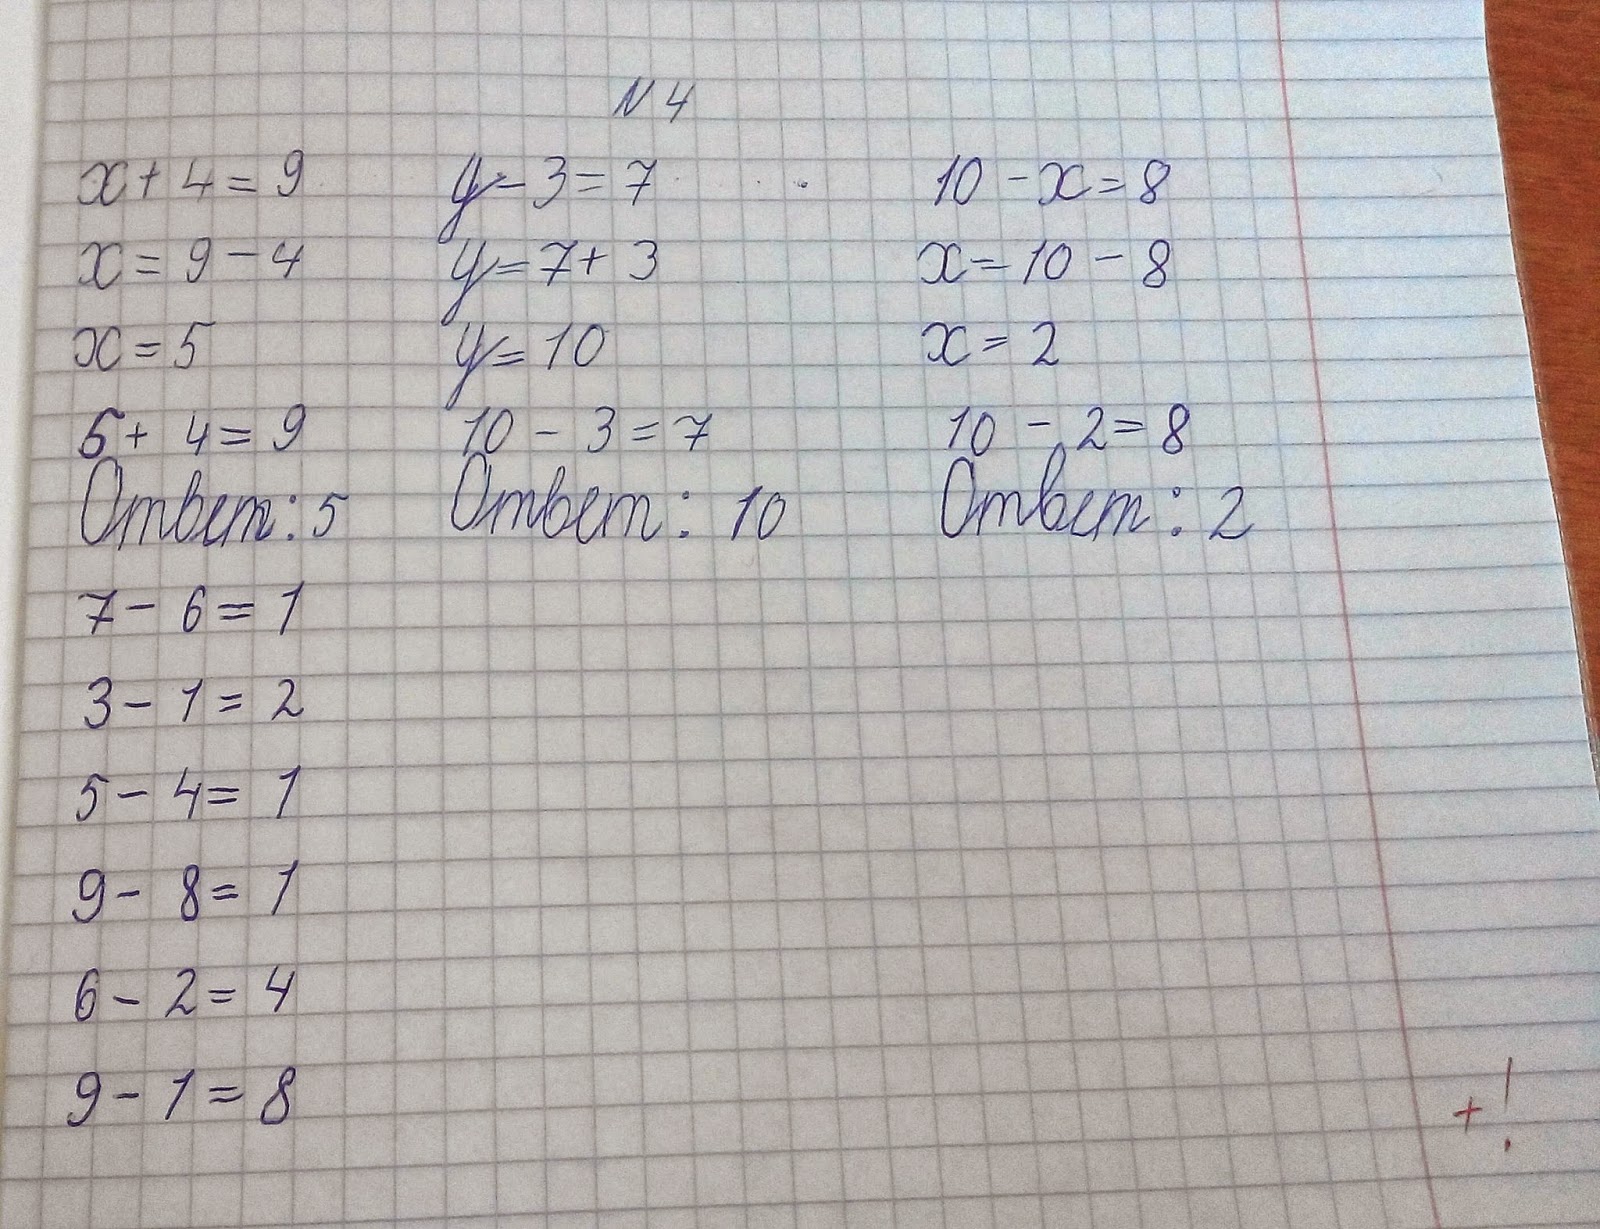 N 4
x + 4 = 9 y - 3 = 7 10 - x = 8
x = 9 - 4 y = 7 + 3 x = 10 - 8
x = 5 y = 10 x = 2
5 + 4 = 9 10 - 3 = 7 10 - 2 = 8
Ответ: 5 Ответ: 10 Ответ: 2
7 - 6 = 1
3 - 1 = 2
5 - 4 = 1
9 - 8 = 1
6 - 2 = 4
9 - 1 = 8
+!